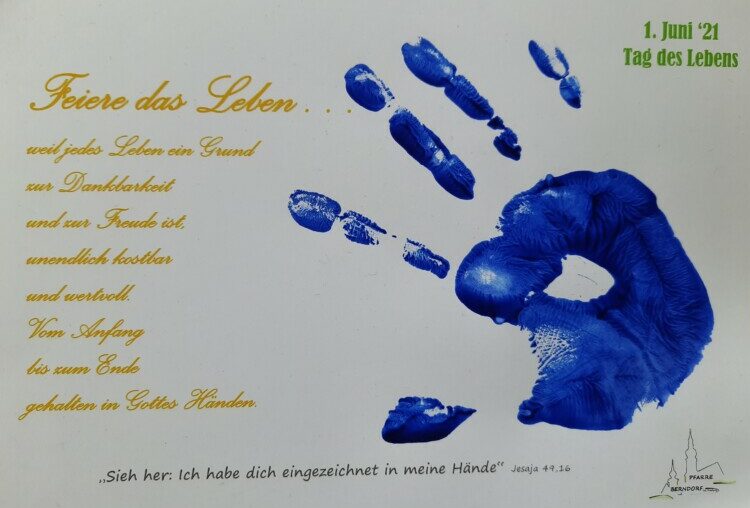 1. Juni ‘21
Tag des Lebens
Feiere das Leben . . .
weil jedes Leben ein Grund
zur Dankbarkeit
und zur Freude ist,
unendlich kostbar
und wertvoll.
Vom Anfang
bis zum Ende
gehalten in Gottes Händen.
„Sieh her: Ich habe dich eingezeichnet in meine Hände“ Jesaja 49,16
PFARRE
BERNDORF